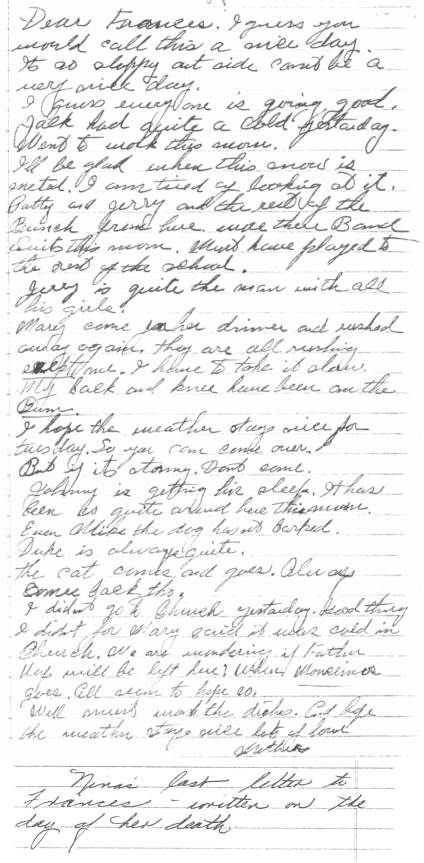 Dear Frances. I guess you
would call this a nice day.
It so sloppy out side cant be a
very nice day.
I guess everyone is going good.
Jack had quite a cold yestarday.
Went to work this morn.
I'll be glad when this snow is
melted. I am tired of looking at it.
Patty and Jerry and the rest of the
Bunch from here wore there Band
suits this morn. Must have played to
the rest of the school.
Jerry is quite the man with all
his girls.
Mary come her dinner and rushed
away again. they are all rushing
except me. I have to take it slow.
My back and knee have been on the
Bum.
I hope the weather stays nice for
tuesday. So you can come over.
But if its stormy. Dont come.
Johnny is getting his sleep. It has
been so quite around here this morn.
Even Mike the dog has not barked.
Duke is always quite.
the cat comes and goes. Always
comes back tho.
I didnt go to Church yestarday. Good thing
I didnt for Mary said it was cold in
Church. We are wondering if Father
will be left here? When
goes. All seem to hope so.
Well must wash the dishes. and hope
the weather stays nice lots of love
Mother
Nina's last letter to
Frances - written on the
day of her death.